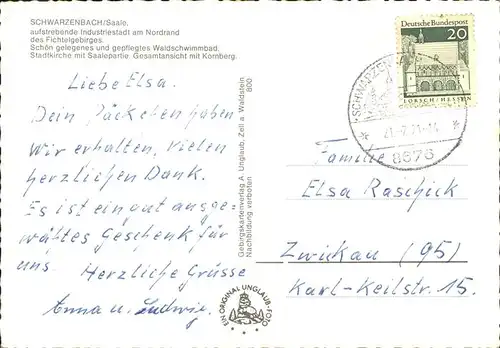 SCHWARZENBACH/Saale,
aufstrebende Industriestadt am Nordrand
des Fichtelgebirges.
Schön gelegenes und gepflegtes Waldschwimmbad.
Stadtkirche mit Saalepartie. Gesamtansicht mit Kornberg.
Liebe Elsa.
Dein Päckchen haben
wir erhalten, vielen
herzlichen Dank.
Es ist ein gut ausge-
wähltes Geschenk für
uns. Herzliche Grüsse
Anna u. Ludwig.
Gebirgskartenverlag A. Unglaub, Zell a. Waldstein
Nachbildung verboten
800
EIN ORIGINAL UNGLAUB-FOTO
Deutsche Bundespost
20
LORSCH/HESSEN
SCHWARZENBA
8676
Familie
Elsa Raschick
Zwickau (95)
Karl-Keilstr. 15.